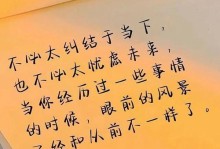 不必太纠结于当下，
也不必太忧虑未来，
当你经历过一些事情
的时候，眼前的风景
已经和从前不一样了。